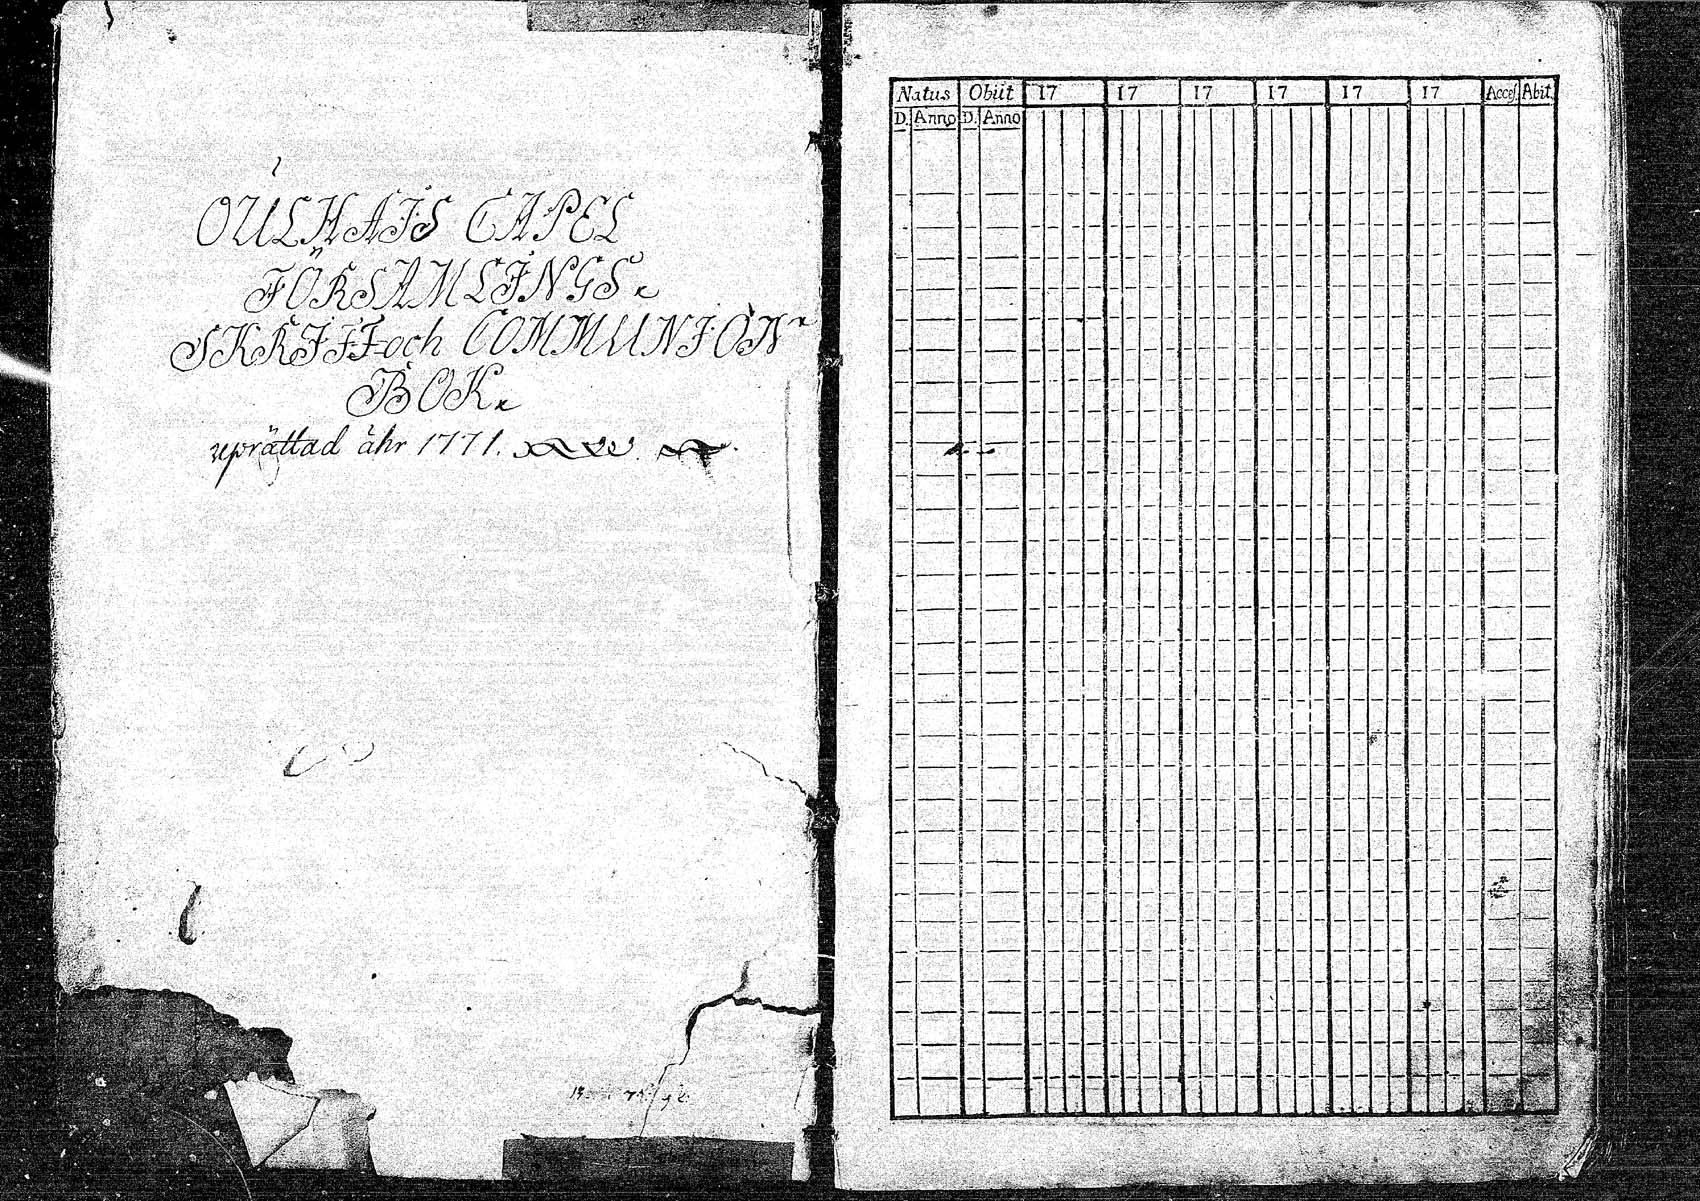 OULHAIS CAPEL
FÖRSAMLINGS
SKRIFT och COMMUNION
BOK
uprättad åhr 1771.
Natus Obiit 17 17 17 17 17 17 Acces. Abit.
D. Anno D. Anno